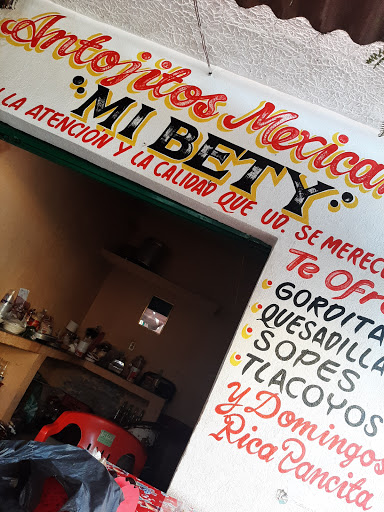 Antojitos Mexica
"MI BETY"
LA ATENCIÓN Y LA CALIDAD QUE UD. SE MERECE
Te Ofre
GORDITA
QUESADILLA
SOPES
TLACOYOS
Y Domingos
Rica Pancita